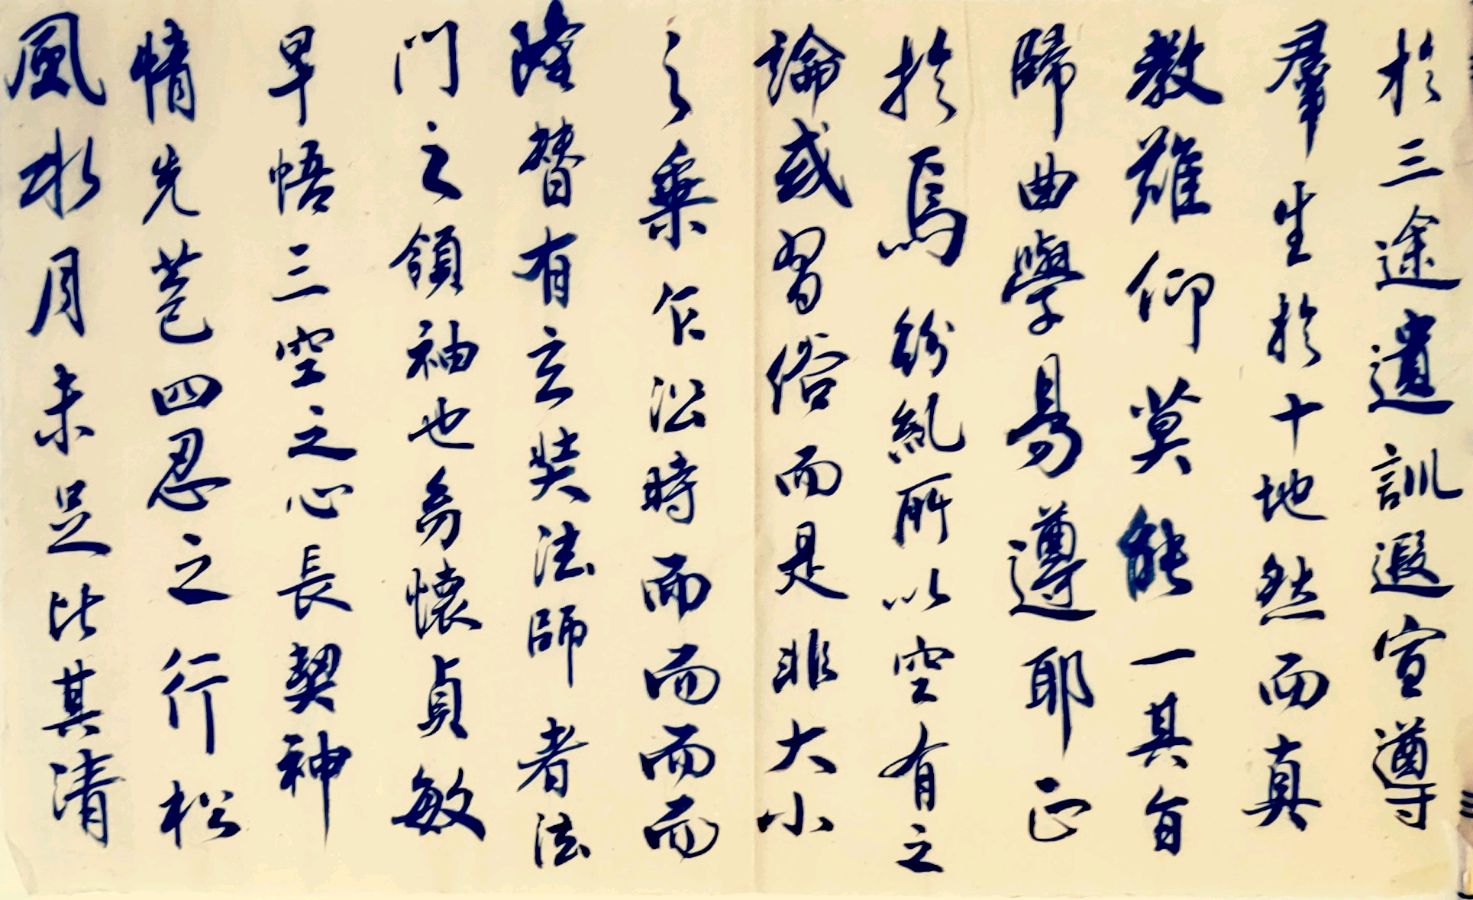 於三途遺訓遐宣遵
羣生於十地然而真
教難仰莫能一其旨
歸曲學易遵耶正
於焉紛糺所以空有之
論或習俗而是非大小
之乘乍沿時而而而而
隆替有玄奘法師者法
門之領袖也幼懷貞敏
早悟三空之心長契神
情先苞四忍之行松
風水月未足比其清